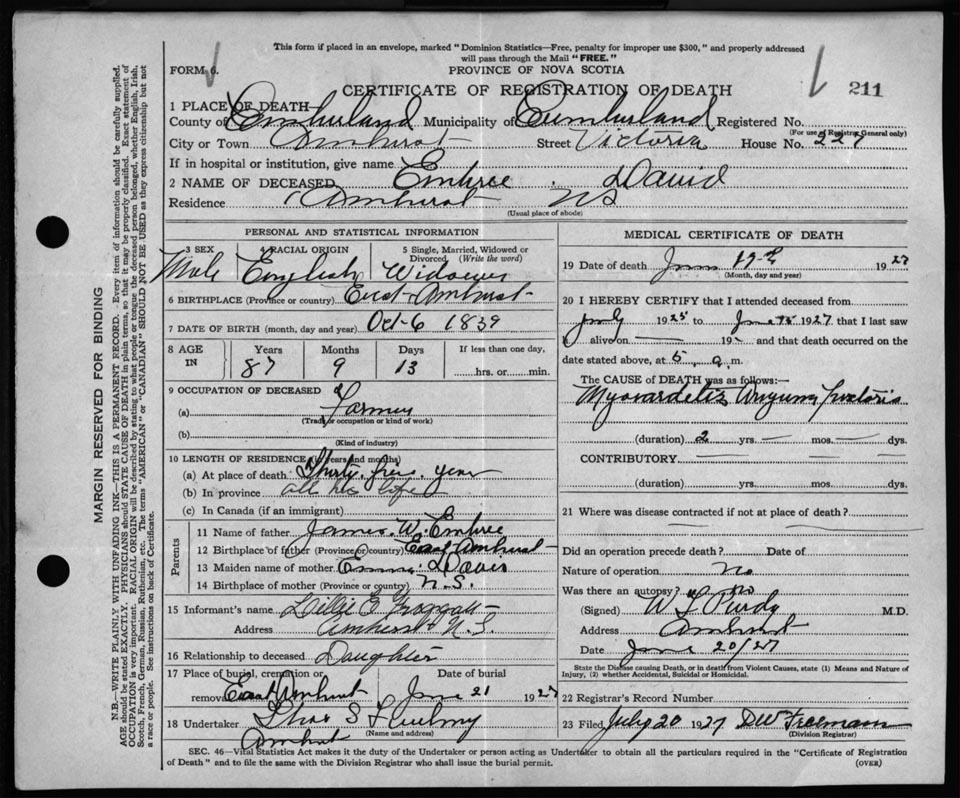 This form if placed in an envelope, marked "Dominion Statistics—Free, penalty for improper use $300," and properly addressed
will pass through the Mail "FREE."
FORM 6. PROVINCE OF NOVA SCOTIA
CERTIFICATE OF REGISTRATION OF DEATH 211
1 PLACE OF DEATH
County of Cumberland Municipality of Cumberland Registered No.
(For use of Registrar General only)
City or Town Amherst Street Victoria House No. 227
If in hospital or institution, give name
2 NAME OF DECEASED Embree David
Residence Amherst NS
(Usual place of abode)
PERSONAL AND STATISTICAL INFORMATION
3 SEX 4 RACIAL ORIGIN 5 Single, Married, Widowed or
Divorced (Write the word)
Male English Widower
6 BIRTHPLACE (Province or country) East Amherst
7 DATE OF BIRTH (month, day and year) Oct 6 1839
8 AGE IN Years Months Days If less than one day,
87 9 13 hrs. or min.
9 OCCUPATION OF DECEASED
(a) Farmer
(Trade or occupation or kind of work)
(b)
(Kind of industry)
10 LENGTH OF RESIDENCE (in years and months)
(a) At place of death Thirty five year
(b) In province all his life
(c) In Canada (if an immigrant)
Parents
11 Name of father James W. Embree
12 Birthplace of father (Province or country) East Amherst
13 Maiden name of mother Davis
14 Birthplace of mother (Province or country) N.S.
15 Informant's name Lillie E
Address Amherst N.S.
16 Relationship to deceased Daughter
17 Place of burial, cremation or Date of burial
removal East Amherst June 21 1927
18 Undertaker Chas S
(Name and address)
Amherst
MEDICAL CERTIFICATE OF DEATH
19 Date of death June 19th 1927
(Month, day and year)
20 I HEREBY CERTIFY that I attended deceased from
July 1925 to June 1927 that I last saw
h alive on — 19 — and that death occurred on the
date stated above, at 5 a.m.
The CAUSE of DEATH was as follows:—
Myocarditis Angina Pectoris
(duration) 2 yrs. — mos. — dys.
CONTRIBUTORY
(duration) yrs. mos. dys.
21 Where was disease contracted if not at place of death?
Did an operation precede death? Date of
Nature of operation No
Was there an autopsy? No
(Signed) W T Purdy M.D.
Address Amherst
Date June 20/27
State the Disease causing Death, or in death from Violent Causes, state (1) Means and Nature of
Injury, (2) whether Accidental, Suicidal or Homicidal.
22 Registrar's Record Number
23 Filed July 20 1927 DW Freeman
(Division Registrar)
SEC. 46—Vital Statistics Act makes it the duty of the Undertaker or person acting as Undertaker to obtain all the particulars required in the "Certificate of Registration
of Death" and to file the same with the Division Registrar who shall issue the burial permit. (OVER)
MARGIN RESERVED FOR BINDING
N.B.—WRITE PLAINLY WITH UNFADING INK—THIS IS A PERMANENT RECORD. Every item of information should be carefully supplied.
AGE should be stated EXACTLY. PHYSICIANS should STATE CAUSE OF DEATH in plain terms, so that it may be properly classified. Exact statement of
OCCUPATION is very important. RACIAL ORIGIN will be described by stating to what people or tongue the deceased person belonged, whether English, Irish,
Scotch, French, German, Russian, Ruthenian, etc. The terms "AMERICAN" or "CANADIAN" SHOULD NOT BE USED as they express citizenship but not
a race or people. See instructions on back of Certificate.